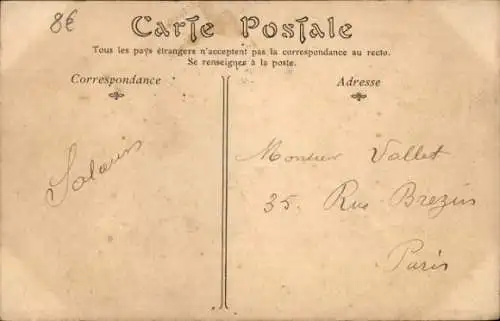 8€
Carte Postale
Tous les pays étrangers n'acceptent pas la correspondance au recto.
Se renseigner à la poste.
Correspondance
Adresse
Monsieur Vallet
35. Rue Brezin
Paris